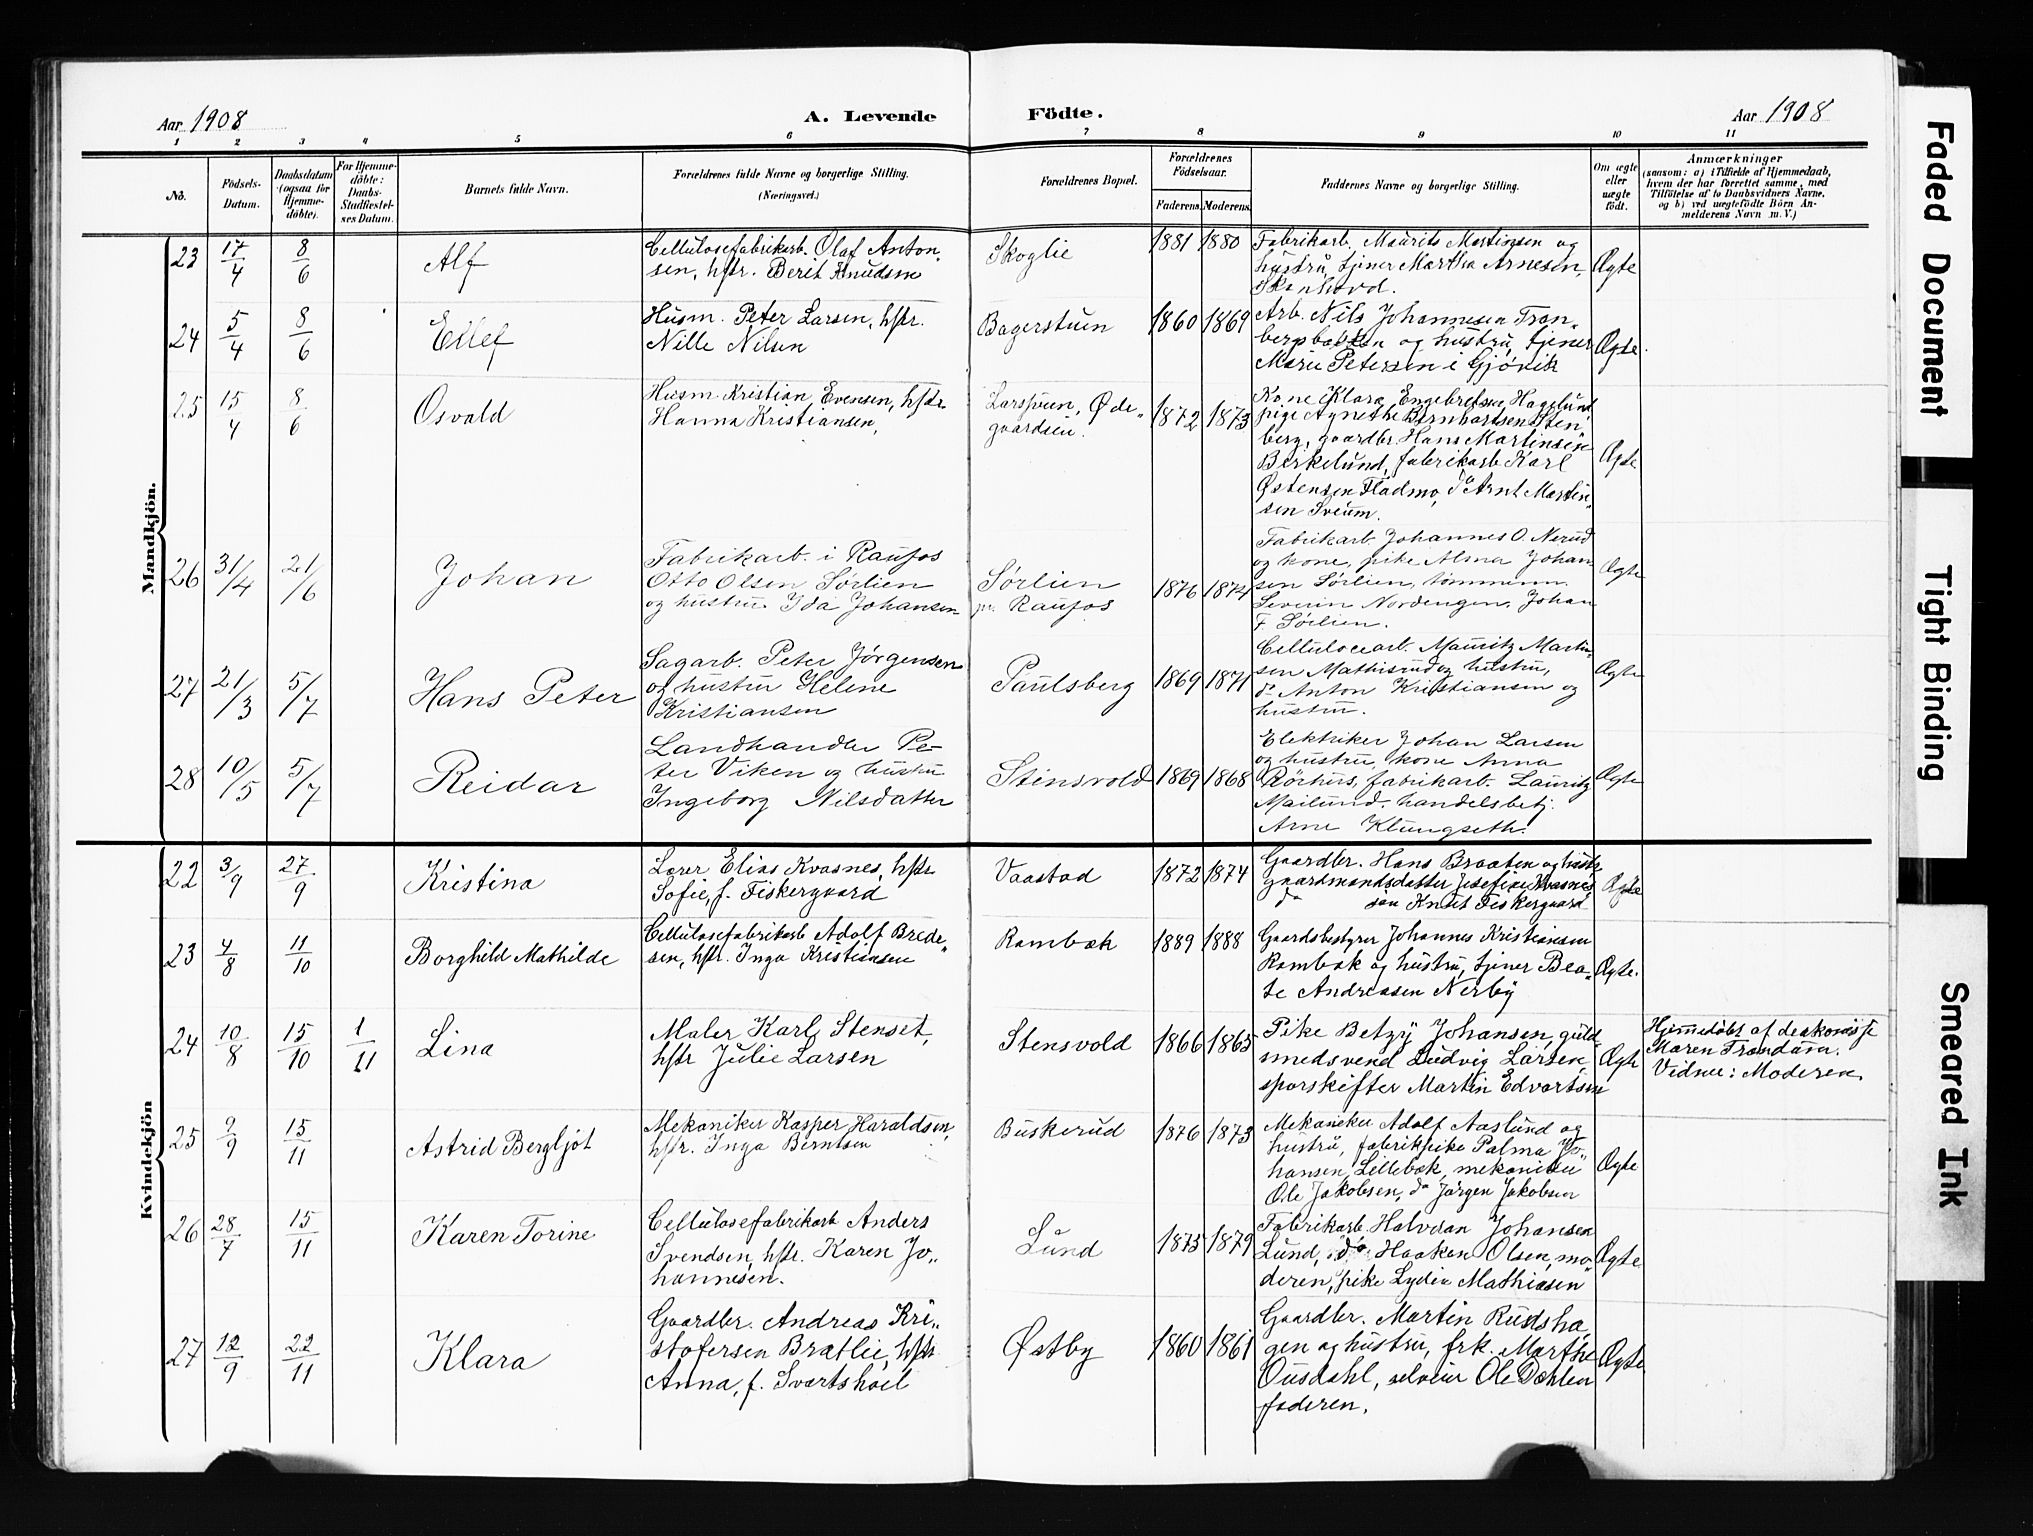 Aar 1908
A. Levende Födte.
Aar 1908
1 2 3 4 5 6 7 8 9 10 11
No.
Födsels-Datum.
Daabsdatum (ogsaa for Hjemmedöbte).
For Hjemmedöbte: Daabs-Stadfæstelses Datum.
Barnets fulde Navn.
Forældrenes fulde Navne og borgerlige Stilling.
(Næringsvei.)
Forældrenes Bopæl.
Forældrenes Födselsaar.
Faderens. Moderens.
Faddernes Navne og borgerlige Stilling.
Om ægte eller uægte födt.
Anmærkninger
(saasom: a) i Tilfælde af Hjemmedaab, hvem der har forrettet samme, med Tilföielse af to Daabsvidners Navne, og b) ved uægtefödte Börn Anmelderens Navn m. V.)
Mandkjön.
23 17/4 8/6 Alf
Cellulosefabrikarb. Olaf Anton-
sen, hstr. Berit Knudsen
Skoglie 1881 1880
Fabrikarb. Maurits Martinsen og
hustru, tjener Martha Arnesen,
Ægte
24 5/4 8/6 Ellef
Husm. Peter Larsen, hstr.
Nille Nilsen
Bagerstuen 1860 1869
Arb. Nils Johannesen Tran-
bergbakken og hustru, tjener
Marie Petersen i Gjövik
Ægte.
25 15/4 8/6 Osvald
Husm. Kristian Evensen, hstr.
Hanna Kristiansen,
Øde-
gaardseie. 1872 1873
Kone Klara Engebretsen Hagelund,
pige Agnethe Bernhartsen Sten-
berg, gaardbr. Hans Martinsen
Birkelund, fabrikarb. Karl
Østensen Fladmo, do Arnt Martin-
sen Sveum.
Ægte
26 31/4 21/6 Johan
Fabrikarb. i Raufos
Otto Olsen Sørlien
og hustru Ida Johansen
Sørlien
pr. Raufos 1876 1874
Fabrikarb. Johannes O. Nerud
og kone, pike Alma Johan
sen Sørlien, tømmerm.
Severin Nordengen, Johan
F. Sørlien.
Ægte
27 21/3 5/7 Hans Peter
Sagarb. Peter Jørgensen
og hustru Helene
Kristiansen
Paulsberg 1869 1871
Cellulocearb. Mauritz Martin-
sen Mathisrud og hustru,
do Anton Kristiansen og
hustru.
Ægte
28 10/5 5/7 Reidar
Landhandler Pe-
ter Viken og hustru
Ingeborg Nilsdatter
Stensvold 1869 1868
Elektriker Johan Larsen
og hustru, kone Anna
Rørhus, fabrikarb. Lauritz
Mailund, handelsbetj.
Arne Klungseth.
Ægte
Kvindekjön
22 3/9 27/9 Kristina
Lærer Elias Kvasnes, hstr.
Sofie, f. Fiskergaard
Vaastad 1872 1874
Gaardbr. Hans Braaten og hustr
gaardmandsdatter Josefine Kvasnes
do søn Knut Fiskergaard
Ægte
23 4/8 11/10 Borghild Mathilde
Cellulosefabrikarb. Adolf Brede-
sen, hstr. Inga Kristiansen
Rambæk 1889 1888
Gaardsbestyrer Johannes Kristiansen
Rambæk og hustru, tjener Bea-
te Andreasen Nerby
Ægte.
24 10/8 15/10 1/11 Lina
Maler Karl Stenset,
hstr Julie Larsen
Stensvold 1866 1865
Pike Betzy Johansen, guld-
smedsvend Ludvig Larsen,
sporskifter Martin Edvartsen
Ægte
Hjemmedøbt af deakonisse
Maren Trandum.
Vidne: Moderen.
25 9/9 15/11 Astrid Bergljot
Mekaniker Kasper Haraldsen,
hstr. Inga Berntsen
Buskerud 1876 1873
Mekaniker Adolf Aaslund og
hustru, fabrikpike Palma Jo-
hansen Lillebæk, mekaniker
Ole Jakobsen, do Jørgen Jakobsen
Ægte
26 28/7 15/11 Karen Torine
Cellulosefabrikarb. Anders
Svendsen, hstr. Karen Jo-
hannesen.
Lund 1875 1879
Fabrikarb. Halvdan Johansen
Lund, do Haakon Olsen, mo-
deren, pike Lydia Mathiasen
Ægte
27 12/9 22/11 Klara
Gaardbr. Andreas Kri-
stofersen Brætlie, hstr
Anna, f. Svartshoel
Østby 1860 1861
Gaardbr. Martin Rudsha-
gen og hustru, frk. Marthe
Ousdahl, selveier Ole Dæhlen
faderen.
Ægte
Faded Document
Tight Binding
Smeared Ink